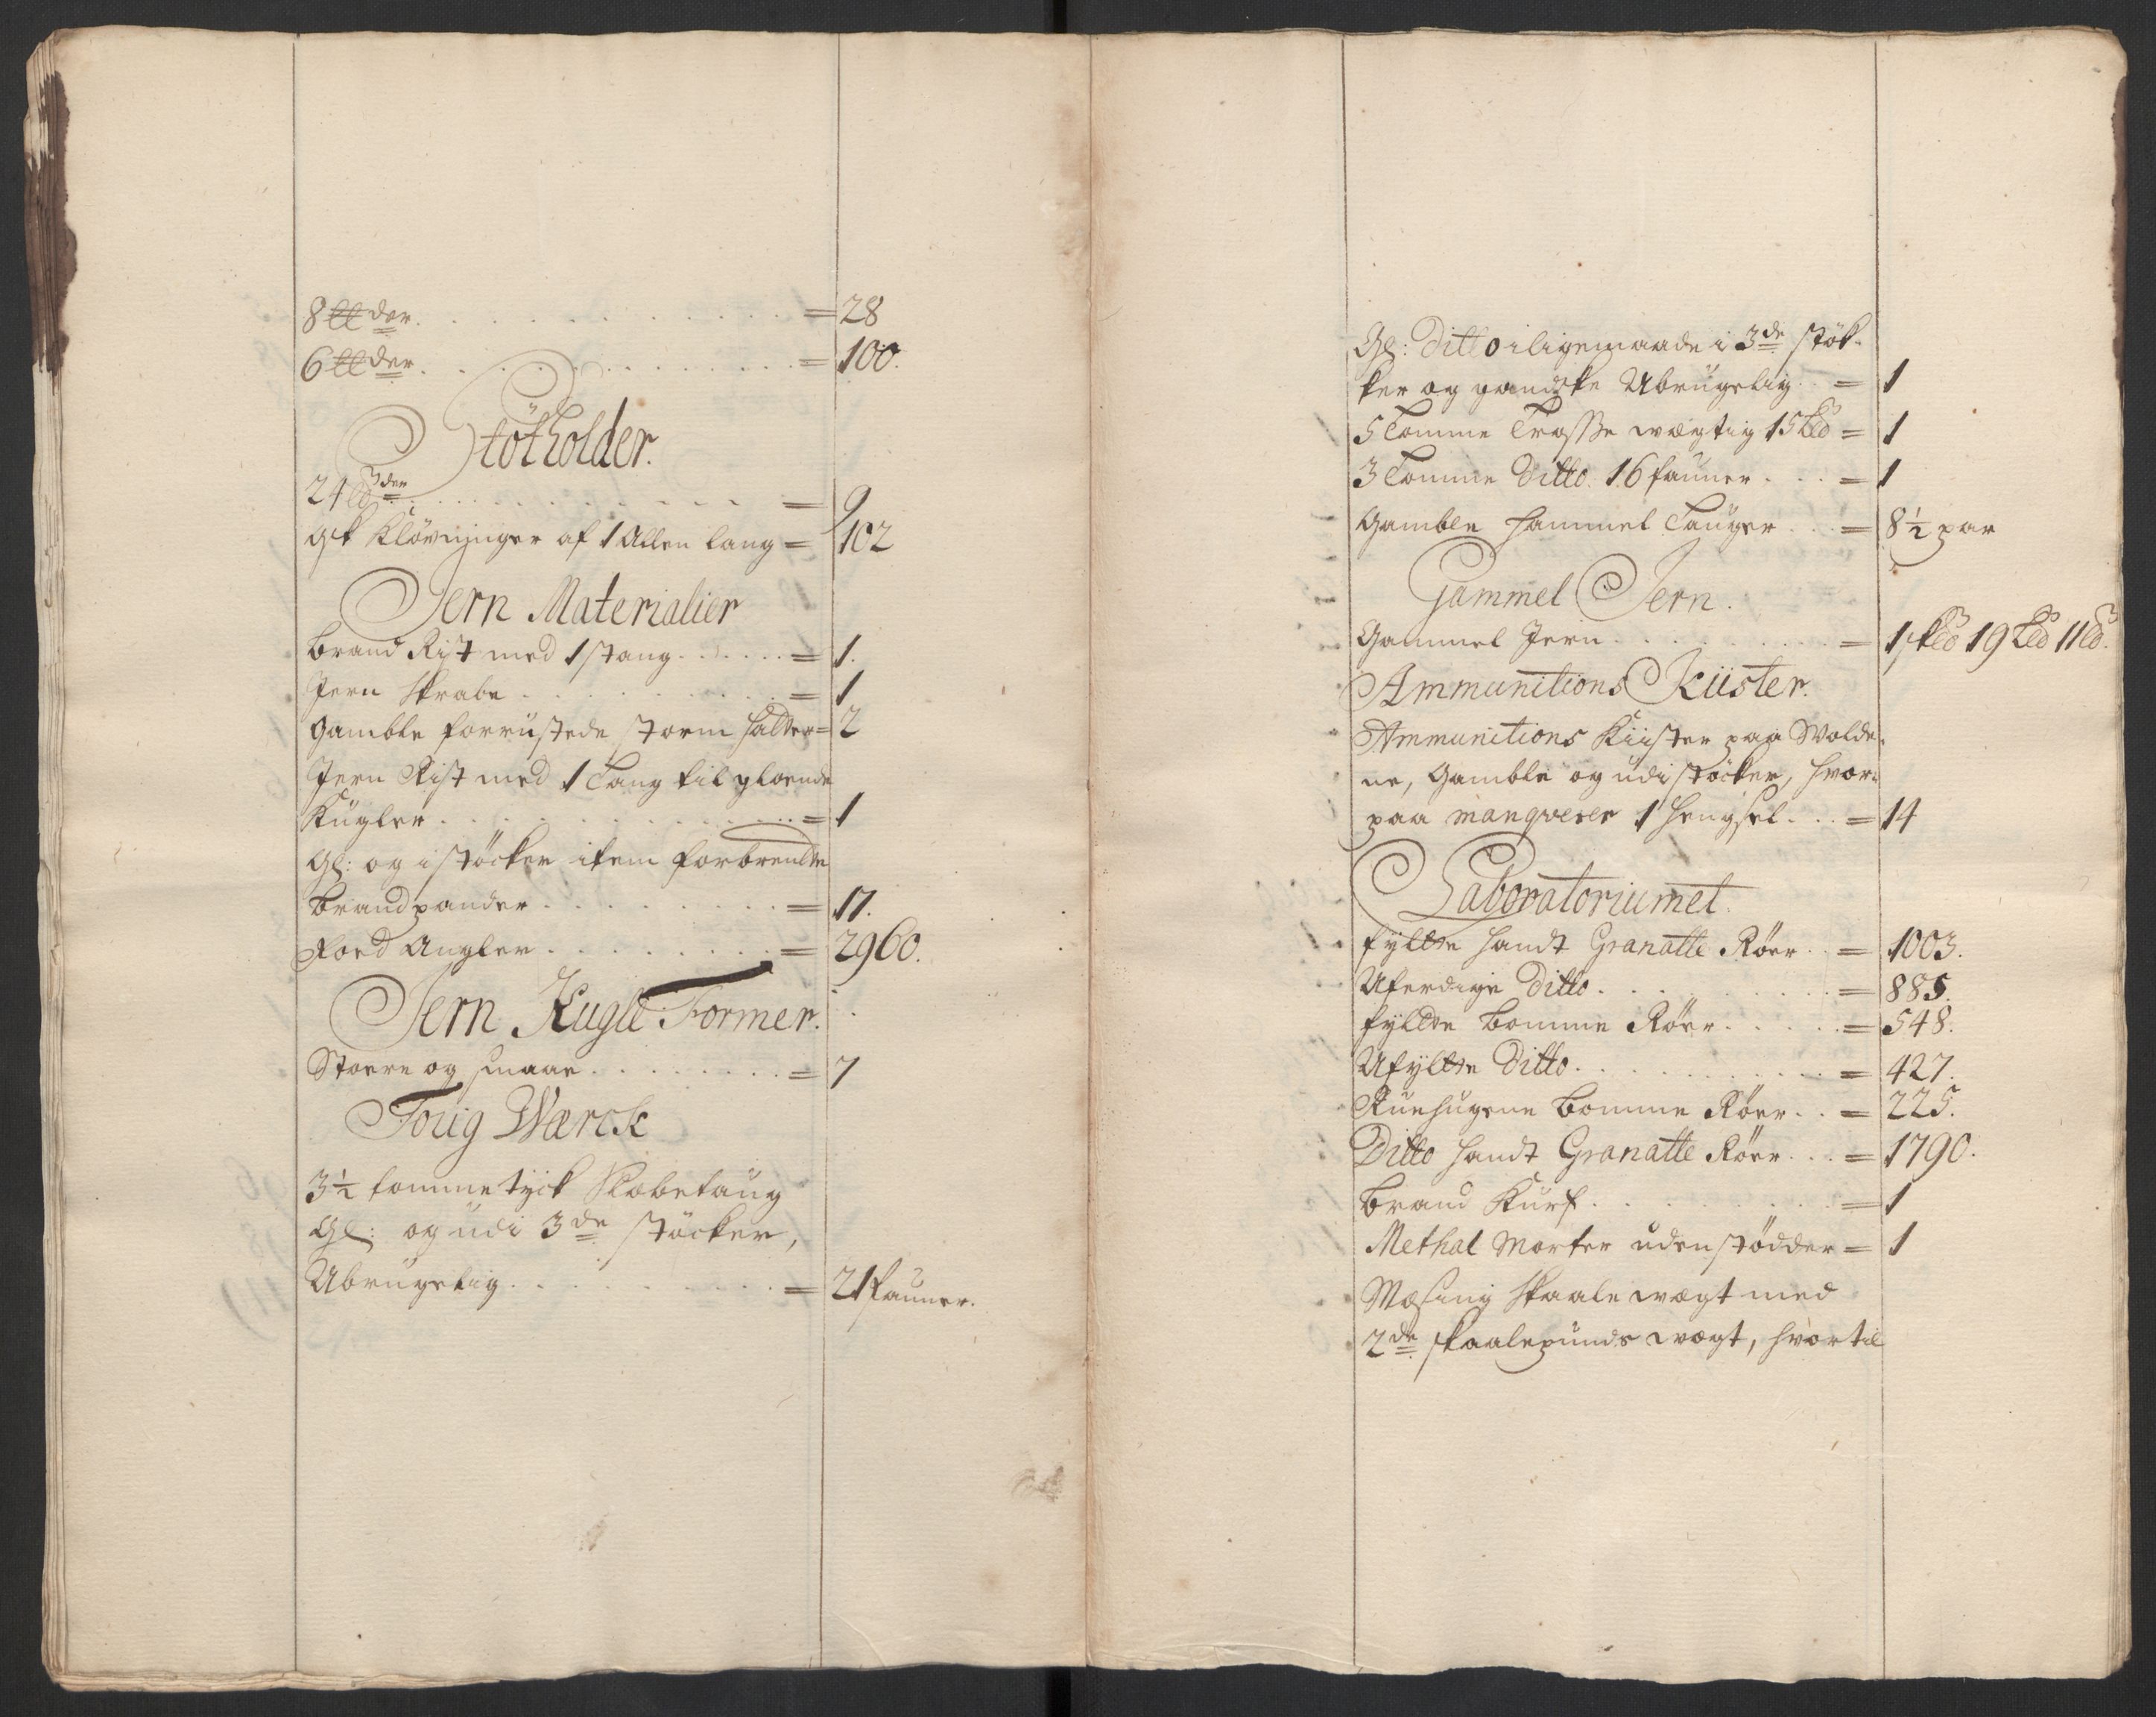 8 ℔der = 28
6 ℔der = 100.
Stötholder.
24 ℔der = 9
gl Klövninger af 1 Allen lang = 102
Jern Materialier
Brand Rist med 1 stang = 1.
Jern Skrabe = 1
Gamble forrustede storm = 2
Jern Rist med 1 Tang til gloende
Kugler = 1
Gl: og i støcker item forbrendte
Brandpander = 17.
Foed Angler = 2960.
Jern Kugle Former.
Stoere og smaae = 7
Toug Wærck
3½ tomme tyck Slæbetaug
Gl: og udi 3de støcker,
Ubrugelig = 21 fauner.
Gl: Ditto iligemaade i 3de støk-
ker og gandske Ubrugelig = 1
5 Tomme Trosse wegtig 15 L℔ = 1
3 Tomme Ditto 16 fauner = 1
Gamble Hammel Tauger = 8½ par
Gammel Jern.
Gammel Jern = 1 sk℔ 19 L℔ 11 ℔.
Ammunitions Kiister.
Ammunitions Kiister paa Wolde-
ne, Gamble og udi støcker, hvor-
paa manqverer 1 Hengsel = 14
Laboratoriumet.
fyldte Handt Granatte Röer = 1003.
Uferdige Ditto = 885.
fyldte Bomme Röer = 548.
Ufyldte Ditto = 427.
Ruehugene Bomme Röer = 225.
Ditto Handt Granatte Röer = 1790.
Brand Kurf = 1
Methal Morter uden stødder = 1
Mesing Skaale wegt med
2de skaalepunds wegt, hvortil